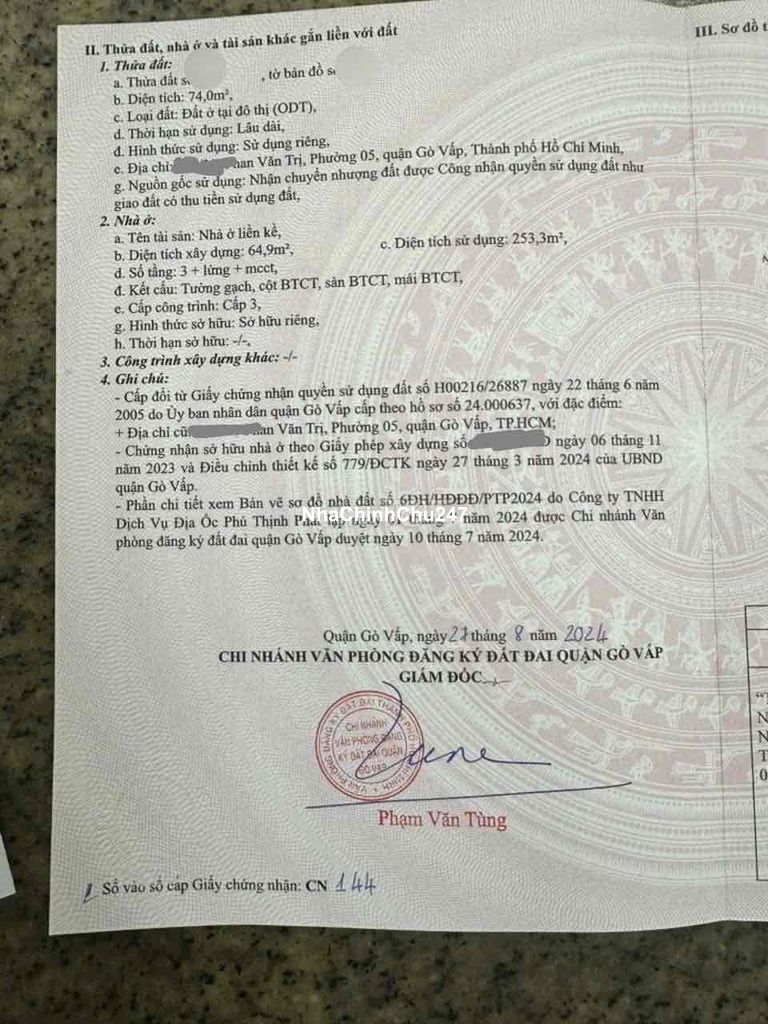 II. Thửa đất, nhà ở và tài sản khác gắn liền với đất
III. Sơ đồ t
1. Thửa đất:
a. Thửa đất s , tờ bản đồ s
b. Diện tích: 74,0m²,
c. Loại đất: Đất ở tại đô thị (ODT),
d. Thời hạn sử dụng: Lâu dài,
đ. Hình thức sử dụng: Sử dụng riêng,
e. Địa chỉ: han Văn Trị, Phường 05, quận Gò Vấp, Thành phố Hồ Chí Minh,
g. Nguồn gốc sử dụng: Nhận chuyển nhượng đất được Công nhận quyền sử dụng đất như
giao đất có thu tiền sử dụng đất,
2. Nhà ở:
a. Tên tài sản: Nhà ở liền kề,
b. Diện tích xây dựng: 64,9m², c. Diện tích sử dụng: 253,3m²,
d. Số tầng: 3 + lửng + mcct,
đ. Kết cấu: Tường gạch, cột BTCT, sàn BTCT, mái BTCT,
e. Cấp công trình: Cấp 3,
g. Hình thức sở hữu: Sở hữu riêng,
h. Thời hạn sở hữu: -/-,
3. Công trình xây dựng khác: -/-
4. Ghi chú:
- Cấp đổi từ Giấy chứng nhận quyền sử dụng đất số H00216/26887 ngày 22 tháng 6 năm
2005 do Ủy ban nhân dân quận Gò Vấp cấp theo hồ sơ số 24.000637, với đặc điểm:
+ Địa chỉ cũ: han Văn Trị, Phường 05, quận Gò Vấp, TP.HCM;
- Chứng nhận sở hữu nhà ở theo Giấy phép xây dựng số Đ ngày 06 tháng 11
năm 2023 và Điều chỉnh thiết kế số 779/ĐCTK ngày 27 tháng 3 năm 2024 của UBND
quận Gò Vấp.
- Phần chi tiết xem Bản vẽ sơ đồ nhà đất số 6ĐH/HĐĐĐ/PTP2024 do Công ty TNHH
NhaChinhChu247
Dịch Vụ Địa Ốc Phú Thịnh Phát lập ngày năm 2024 được Chi nhánh Văn
phòng đăng ký đất đai quận Gò Vấp duyệt ngày 10 tháng 7 năm 2024.
Quận Gò Vấp, ngày 27 tháng 8 năm 2024
CHI NHÁNH VĂN PHÒNG ĐĂNG KÝ ĐẤT ĐAI QUẬN GÒ VẤP
GIÁM ĐỐC
CHI NHÁNH
VĂN PHÒNG ĐĂNG
KÝ ĐẤT ĐAI QUẬN
GÒ VẤP
Phạm Văn Tùng
Số vào sổ cấp Giấy chứng nhận: CN 144